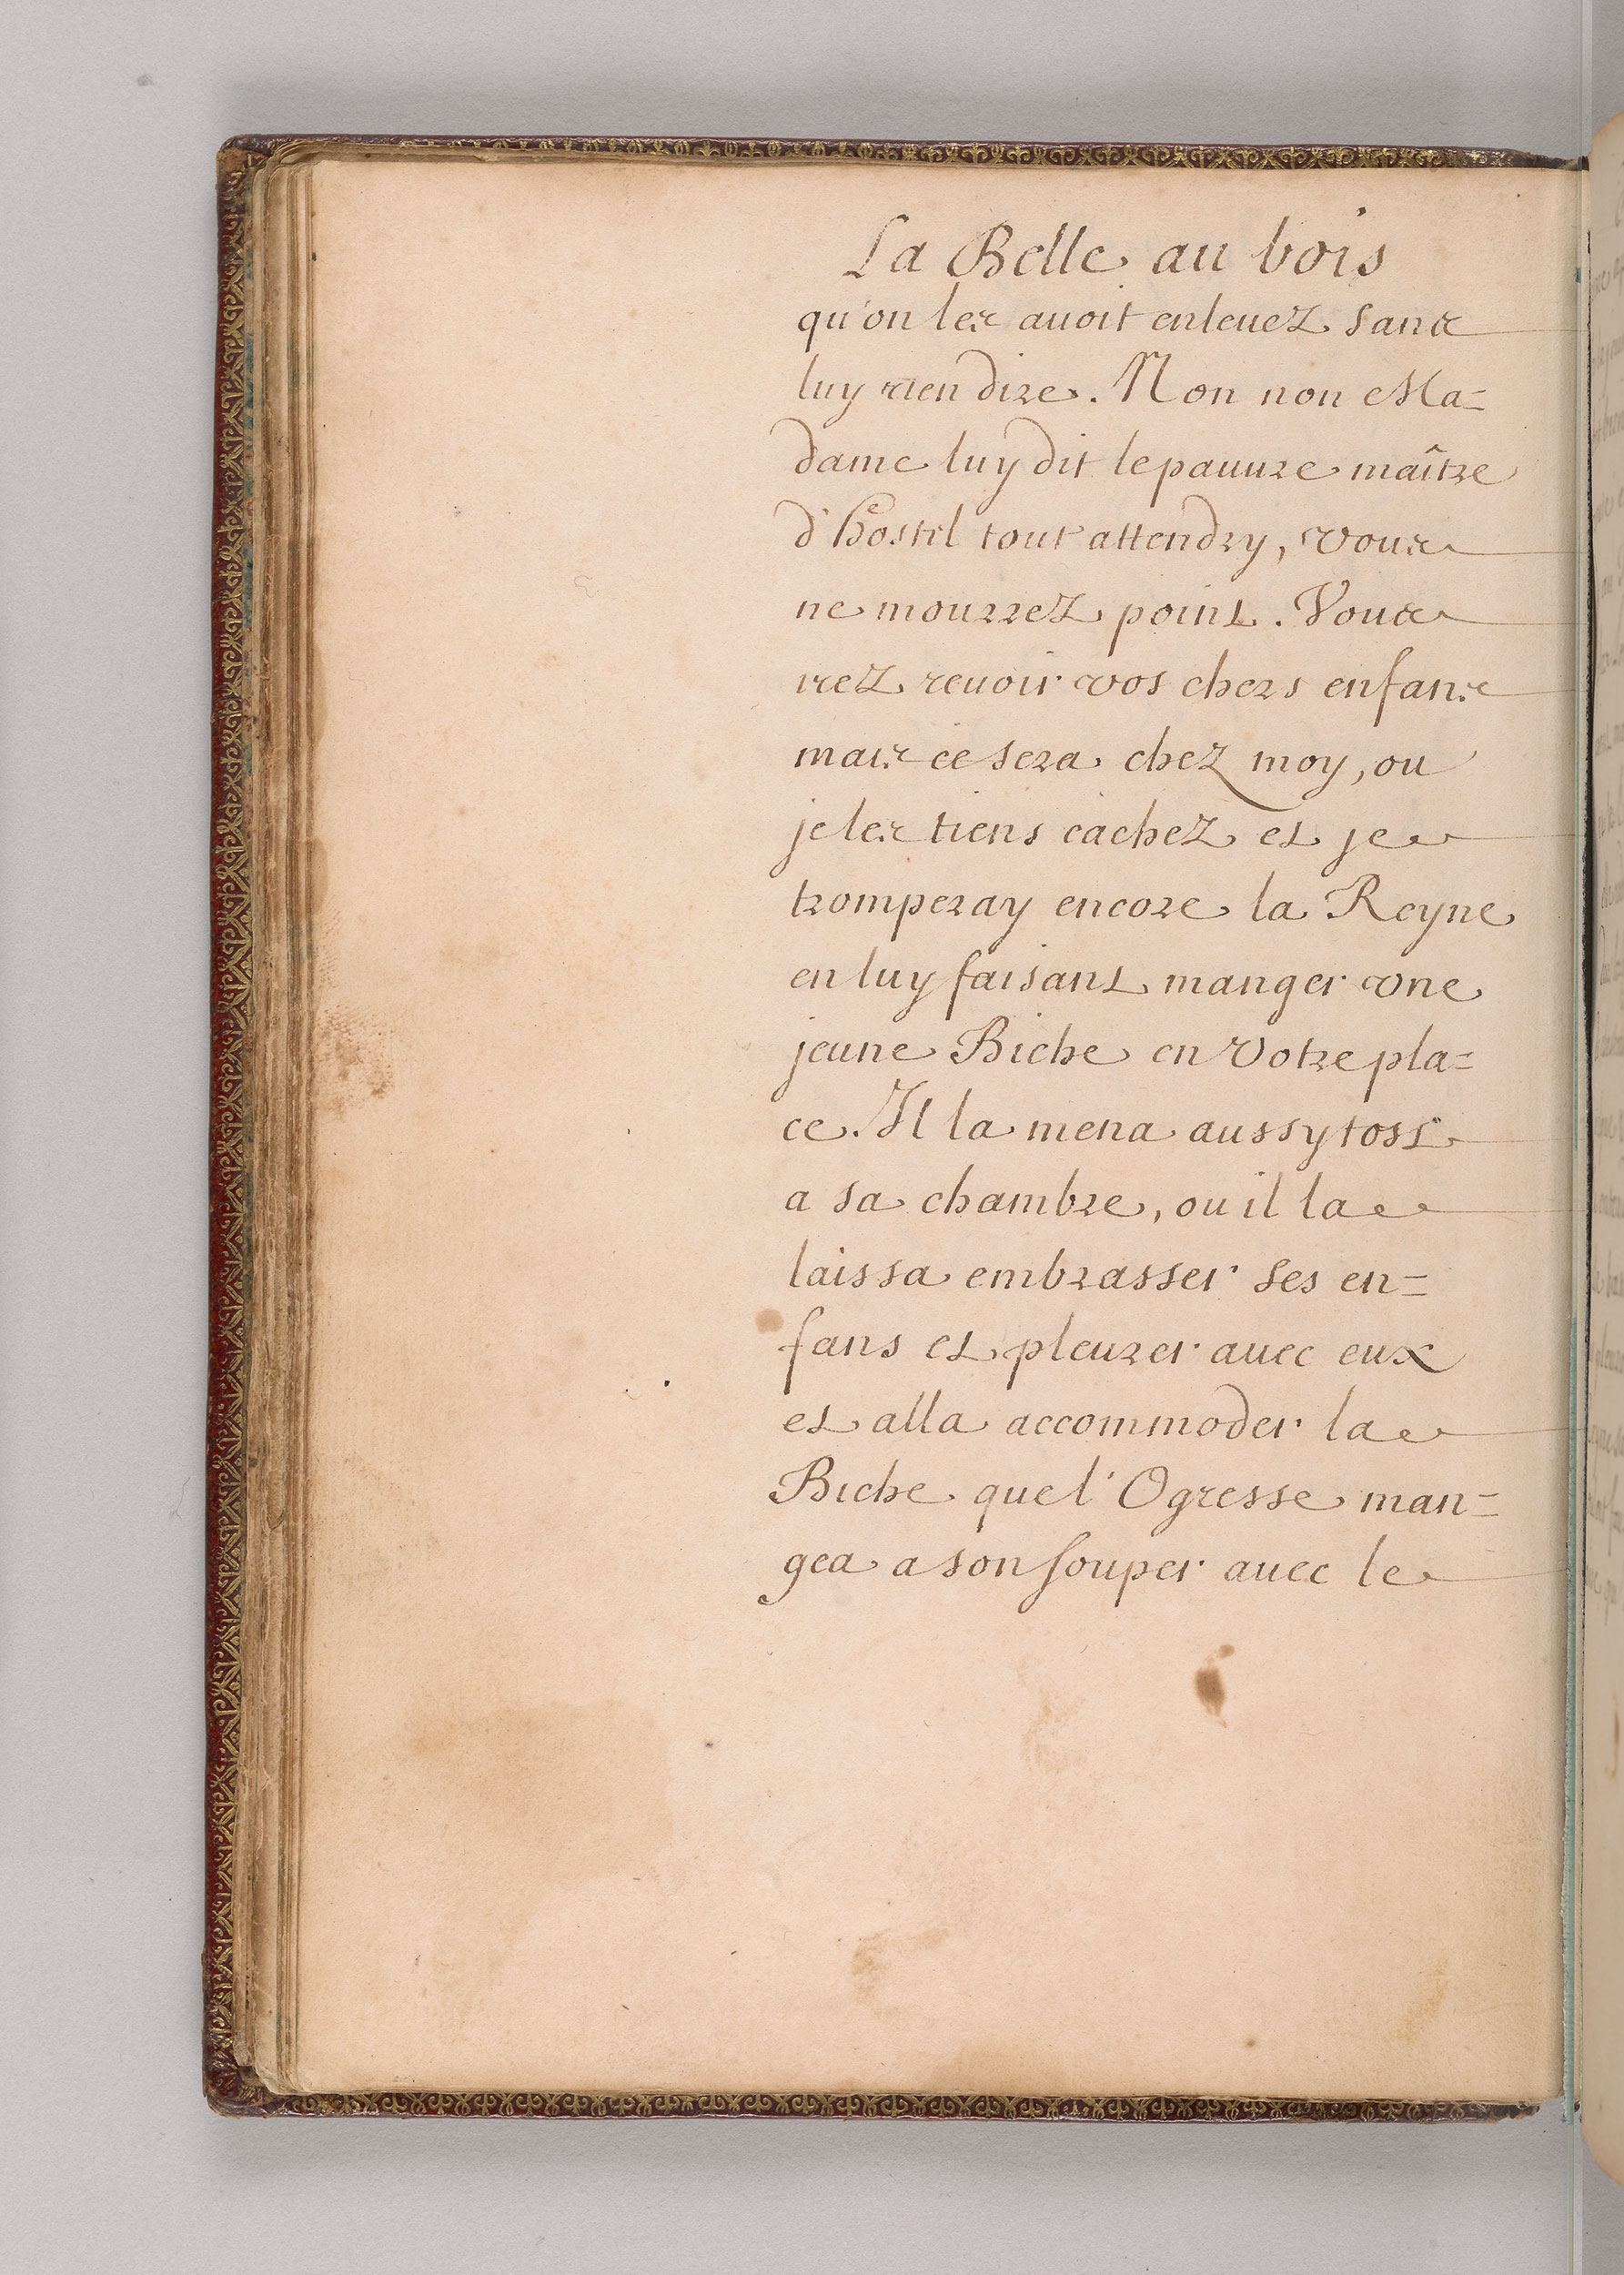 La Belle au bois
qu'on les auoit enleuez sans
luy rien dire. Non non Ma=
dame luy dit le pauure maître
d'hostel tout attendry, vous
ne mourrez point. Vous
irez reuoir vos chers enfans
mais ce sera chez moy, ou
je les tiens cachez et je
tromperay encore la Reyne
en luy faisant manger vne
jeune Biche en votre pla=
ce. Il la mena aussytost
a sa chambre, ou il la
laissa embrasser ses en=
fans et pleurer auec eux
et alla accommoder la
Biche que l'Ogresse man=
gea a son souper auec le